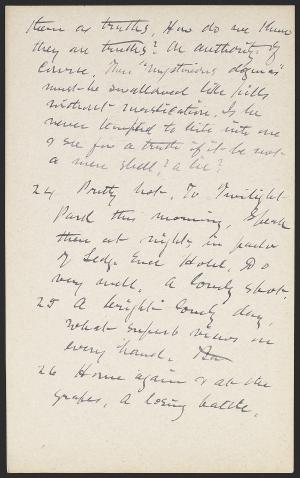 them as truths. How do we know
they are truths? On authority of
course. Thus "mysterious dogmas"
must be swallowed like pills
without mastication. Is he
never tempted to bite into one
& see for a truth if it be not
a mere shell, a lie?
24 Pretty hot. To Twilight
Park this morning. Speak
there at night in parlor
of Ledge End Hotel. Do
very well. A lovely spot.
25 A bright lovely day,
what superb views on
every hand.
26 Home again & at the
grapes. A losing battle.